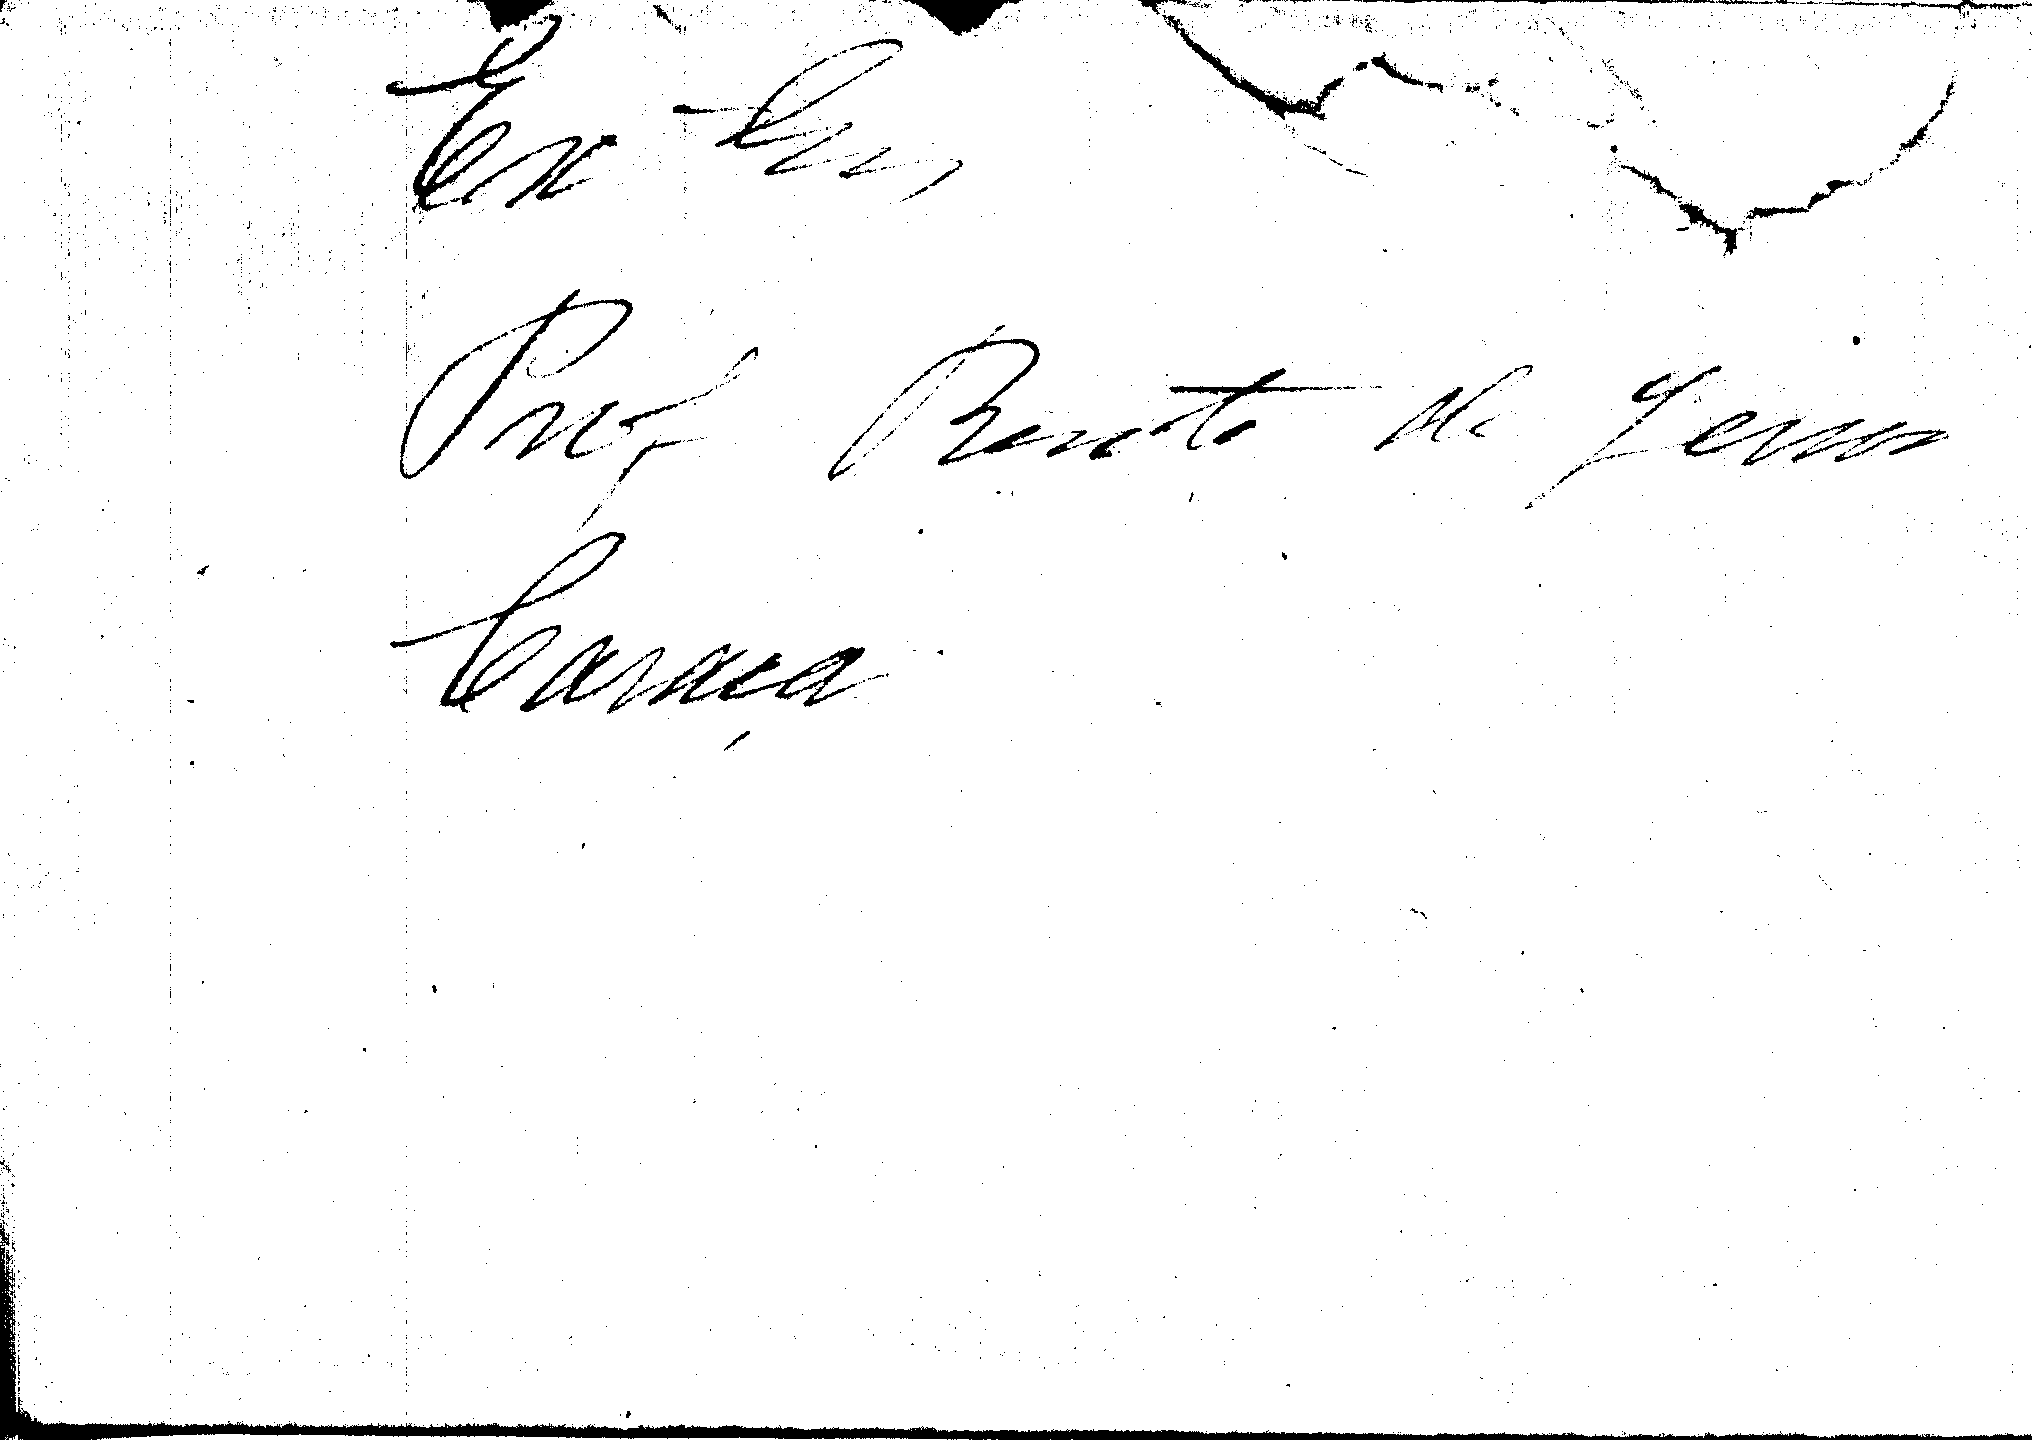 Ex mo Snr.
Prof. Bento de Jesus
Caraça